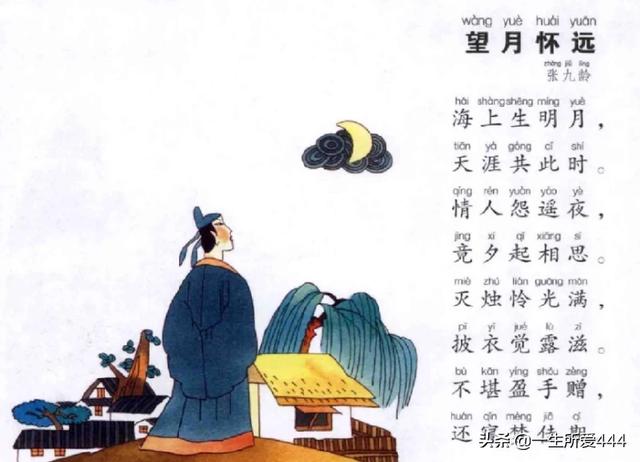 wàng yuè huái yuǎn
望月怀远
zhāng jiǔ líng
张九龄
hǎi shàng shēng míng yuè
海上生明月，
tiān yá gòng cǐ shí
天涯共此时。
qíng rén yuàn yáo yè
情人怨遥夜，
jìng xī qǐ xiāng sī
竟夕起相思。
miè zhú lián guāng mǎn
灭烛怜光满，
pī yī jué lù zī
披衣觉露滋。
bù kān yíng shǒu zèng
不堪盈手赠，
huán qǐn mèng jiā qī
还寝梦佳期
头条 @一生所爱444